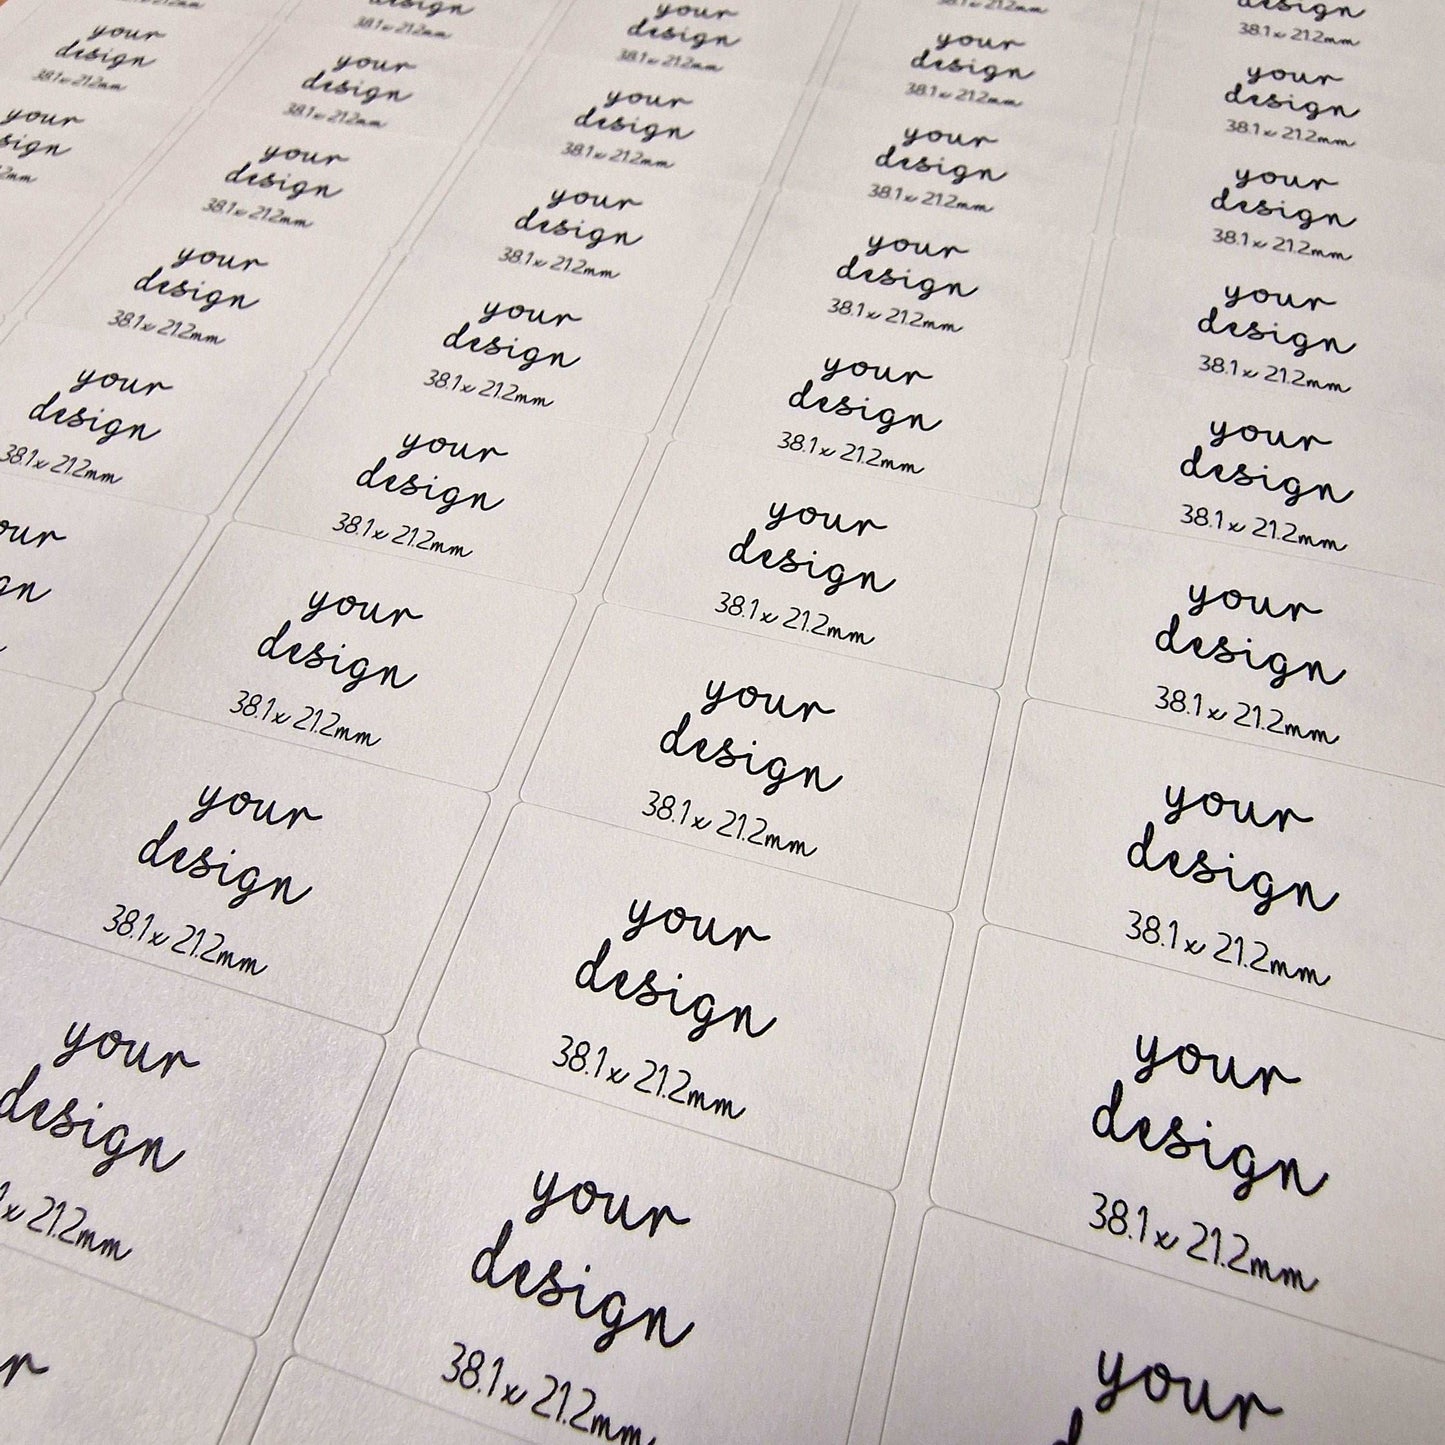 your
design
38.1x21.2mm
design
38.1x21.2mm
your
design
38.1x21.2mm
your
design
38.1x21.2mm
your
design
38.1x21.2mm
your
design
38.1x21.2mm
your
design
38.1x21.2mm
your
design
38.1x21.2mm
your
design
38.1x21.2mm
your
design
38.1x21.2mm
your
design
38.1x21.2mm
your
design
38.1x21.2mm
your
design
38.1x21.2mm
your
design
21.2mm
38.1x21.2mm
your
design
38.1x21.2mm
your
design
38.1x21.2mm
your
design
38.1x21.2mm
your
design
38.1x21.2mm
your
design
38.1x21.2mm
your
design
38.1x21.2mm
your
design
38.1x21.2mm
your
design
38.1x21.2mm
design
38.1x21.2mm
your
design
38.1x21.2mm
your
design
38.1x21.2mm
your
design
38.1x21.2mm
your
design
38.1x21.2mm
your
design
38.1x21.2mm
your
design
38.1x21.2mm
your
design
38.1x21.2mm
your